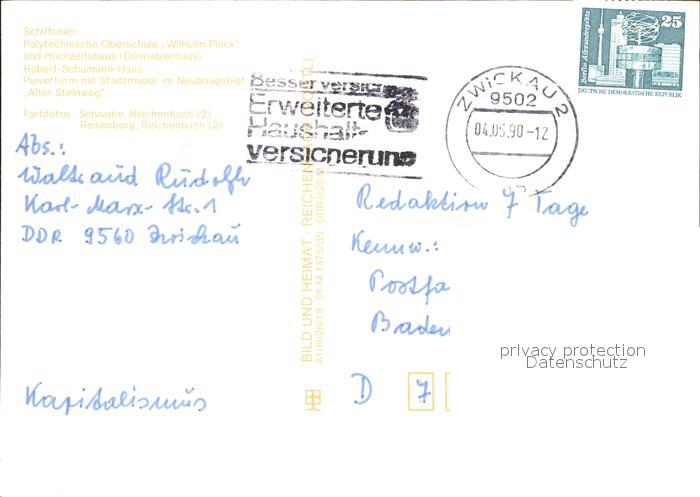 Schiffchen
Polytechnische Oberschule „Wilhelm Pieck"
und Hochzeitshaus (Dünnebierhaus)
Robert-Schumann-Haus
Pulverturm mit Stadtmauer im Neubaugebiet
„Alter Steinweg"
Farbfotos: Schwabe, Reichenbach (2)
Reisenberg, Reichenbach (2)
Abs.:
Waltraud Rudolph
Karl-Marx-Str. 1
DDR 9560 Zwickau
Kapitalismus
BILD UND HEIMAT · REICHENBACH
A1/III/26/13 · 01 14 1375/35 DDR 0,20 M
Besser versichert
Erweiterte
Haushalt-
versicherung
ZWICKAU 2
9502
04.05.90-12
25
Berlin, Alexanderplatz
DEUTSCHE DEMOKRATISCHE REPUBLIK
Redaktion 7 Tage
Kennw.:
Postfa
Baden
D 7
privacy protection
Datenschutz